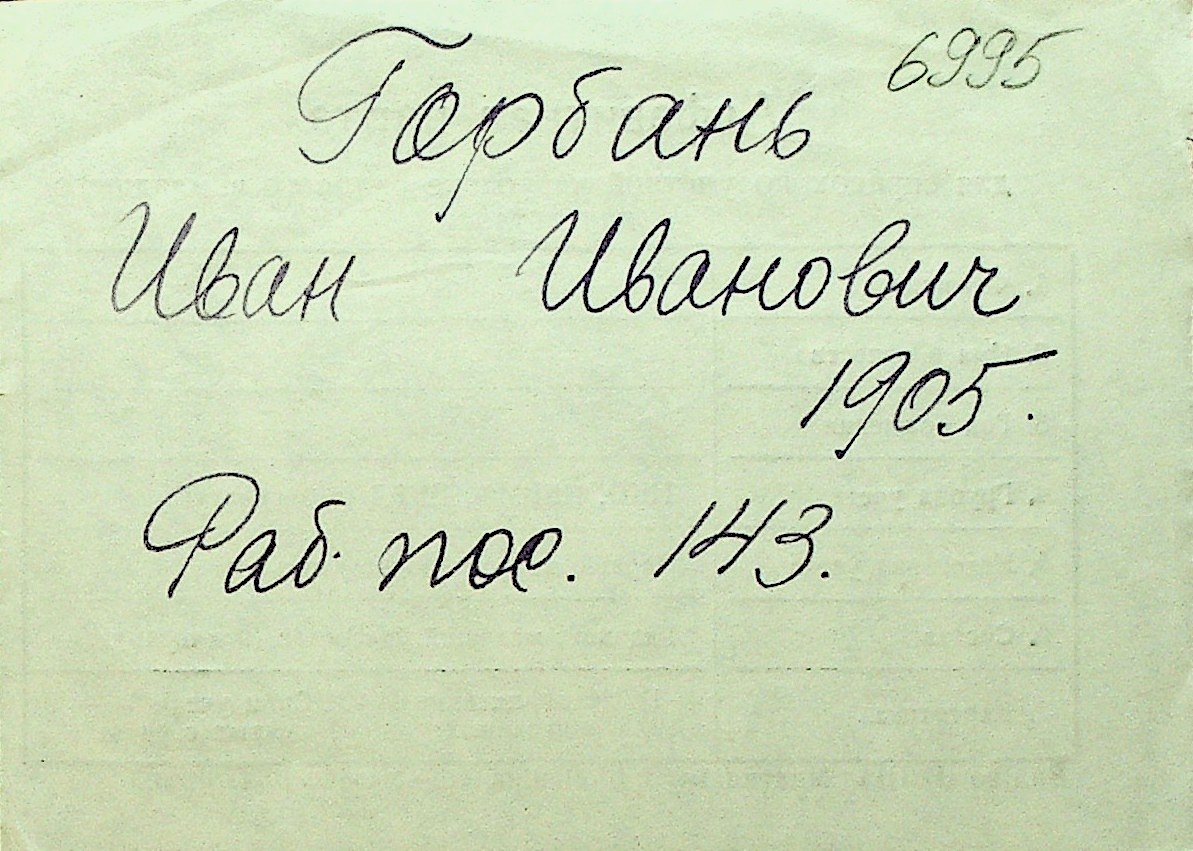 6995
Горбань
Иван Иванович
1905.
Раб. пос. 143.